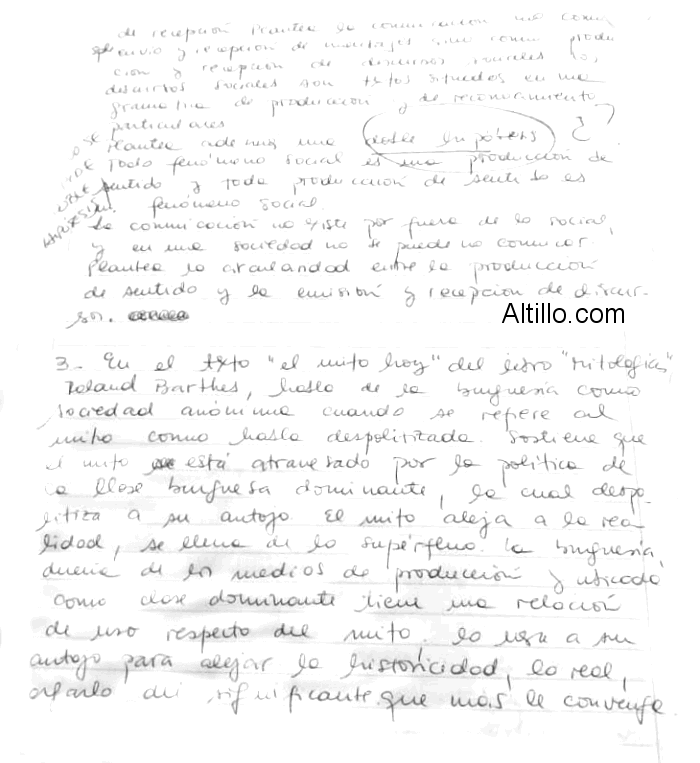 de recepción Plantea la comunicación no como
envío y recepción de mensajes sino como produ
cion y recepcion de discursos sociales los
discursos sociales son textos situados en una
gramatica de produccion y de reconocimiento
particulares
Plantea ademas una doble hipótesis
Todo fenómeno social es una producción de
sentido y toda producción de sentido es
fenómeno social.
La comunicación no existe por fuera de lo social,
y en una sociedad no se puede no comunicar.
Plantea la circularidad entre la producción
de sentido y la emisión y recepcion de discur-
sos.
Altillo.com
3. En el texto "el mito hoy" del libro "Mitologias"
Roland Barthes, habla de la burguesía como
sociedad anónima cuando se refiere al
mito como habla despolitizada. Sostiene que
el mito está atravesado por la política de
la clase burguesa dominante, la cual despo-
litiza a su antojo El mito aleja a la rea
lidad, se llena de lo supérfluo. La burguesía,
duena de los medios de producción y ubicada
como clase dominante tiene una relación
de uso respecto del mito. lo usa a su
antojo para alejar la historicidad, lo real,
del significante que mas le convenga.